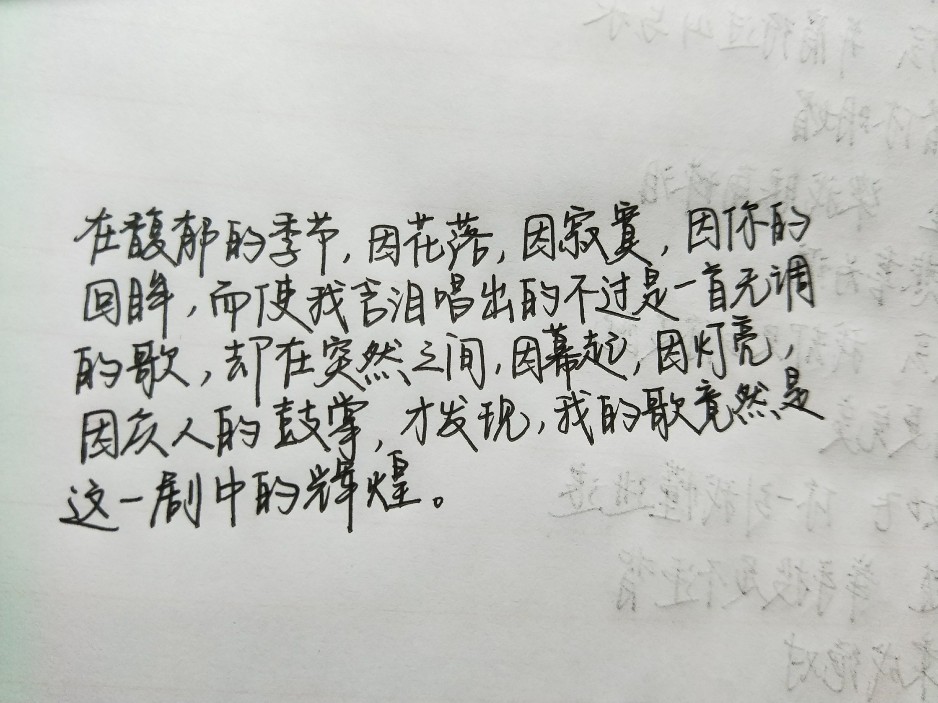 在馥郁的季节,因花落,因寂寞,因你的
回眸,而使我含泪唱出的不过是一首无调
的歌,却在突然之间,因幕起,因灯亮,
因众人的鼓掌,才发现,我的歌竟然是
这一剧中的辉煌。